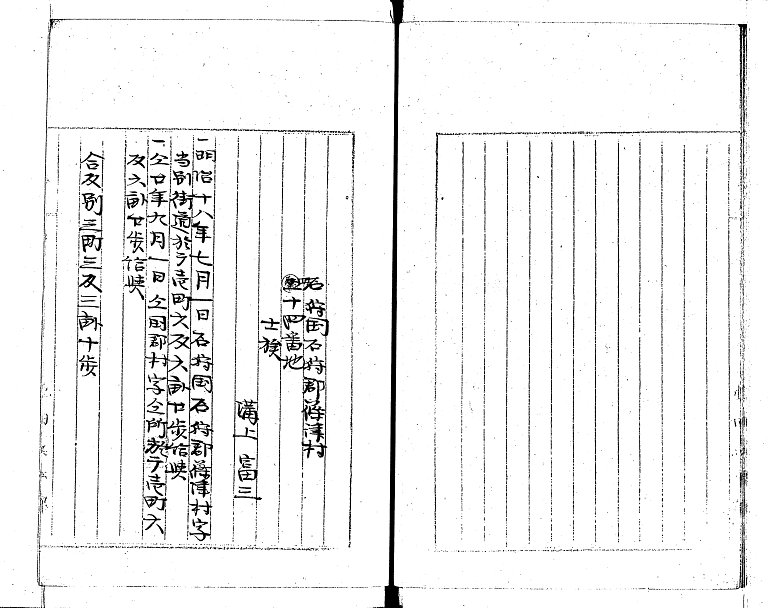 石狩国石狩郡篠津村
十四番地
士族
溝上富三
一明治十八年七月一日石狩国石狩郡篠津村字
当別街道於テ壱町六反六畝廿歩給与
一仝廿年九月一日仝国郡村字仝所於テ壱町六
反六畝廿歩給与
合反別三町三反三畝十歩